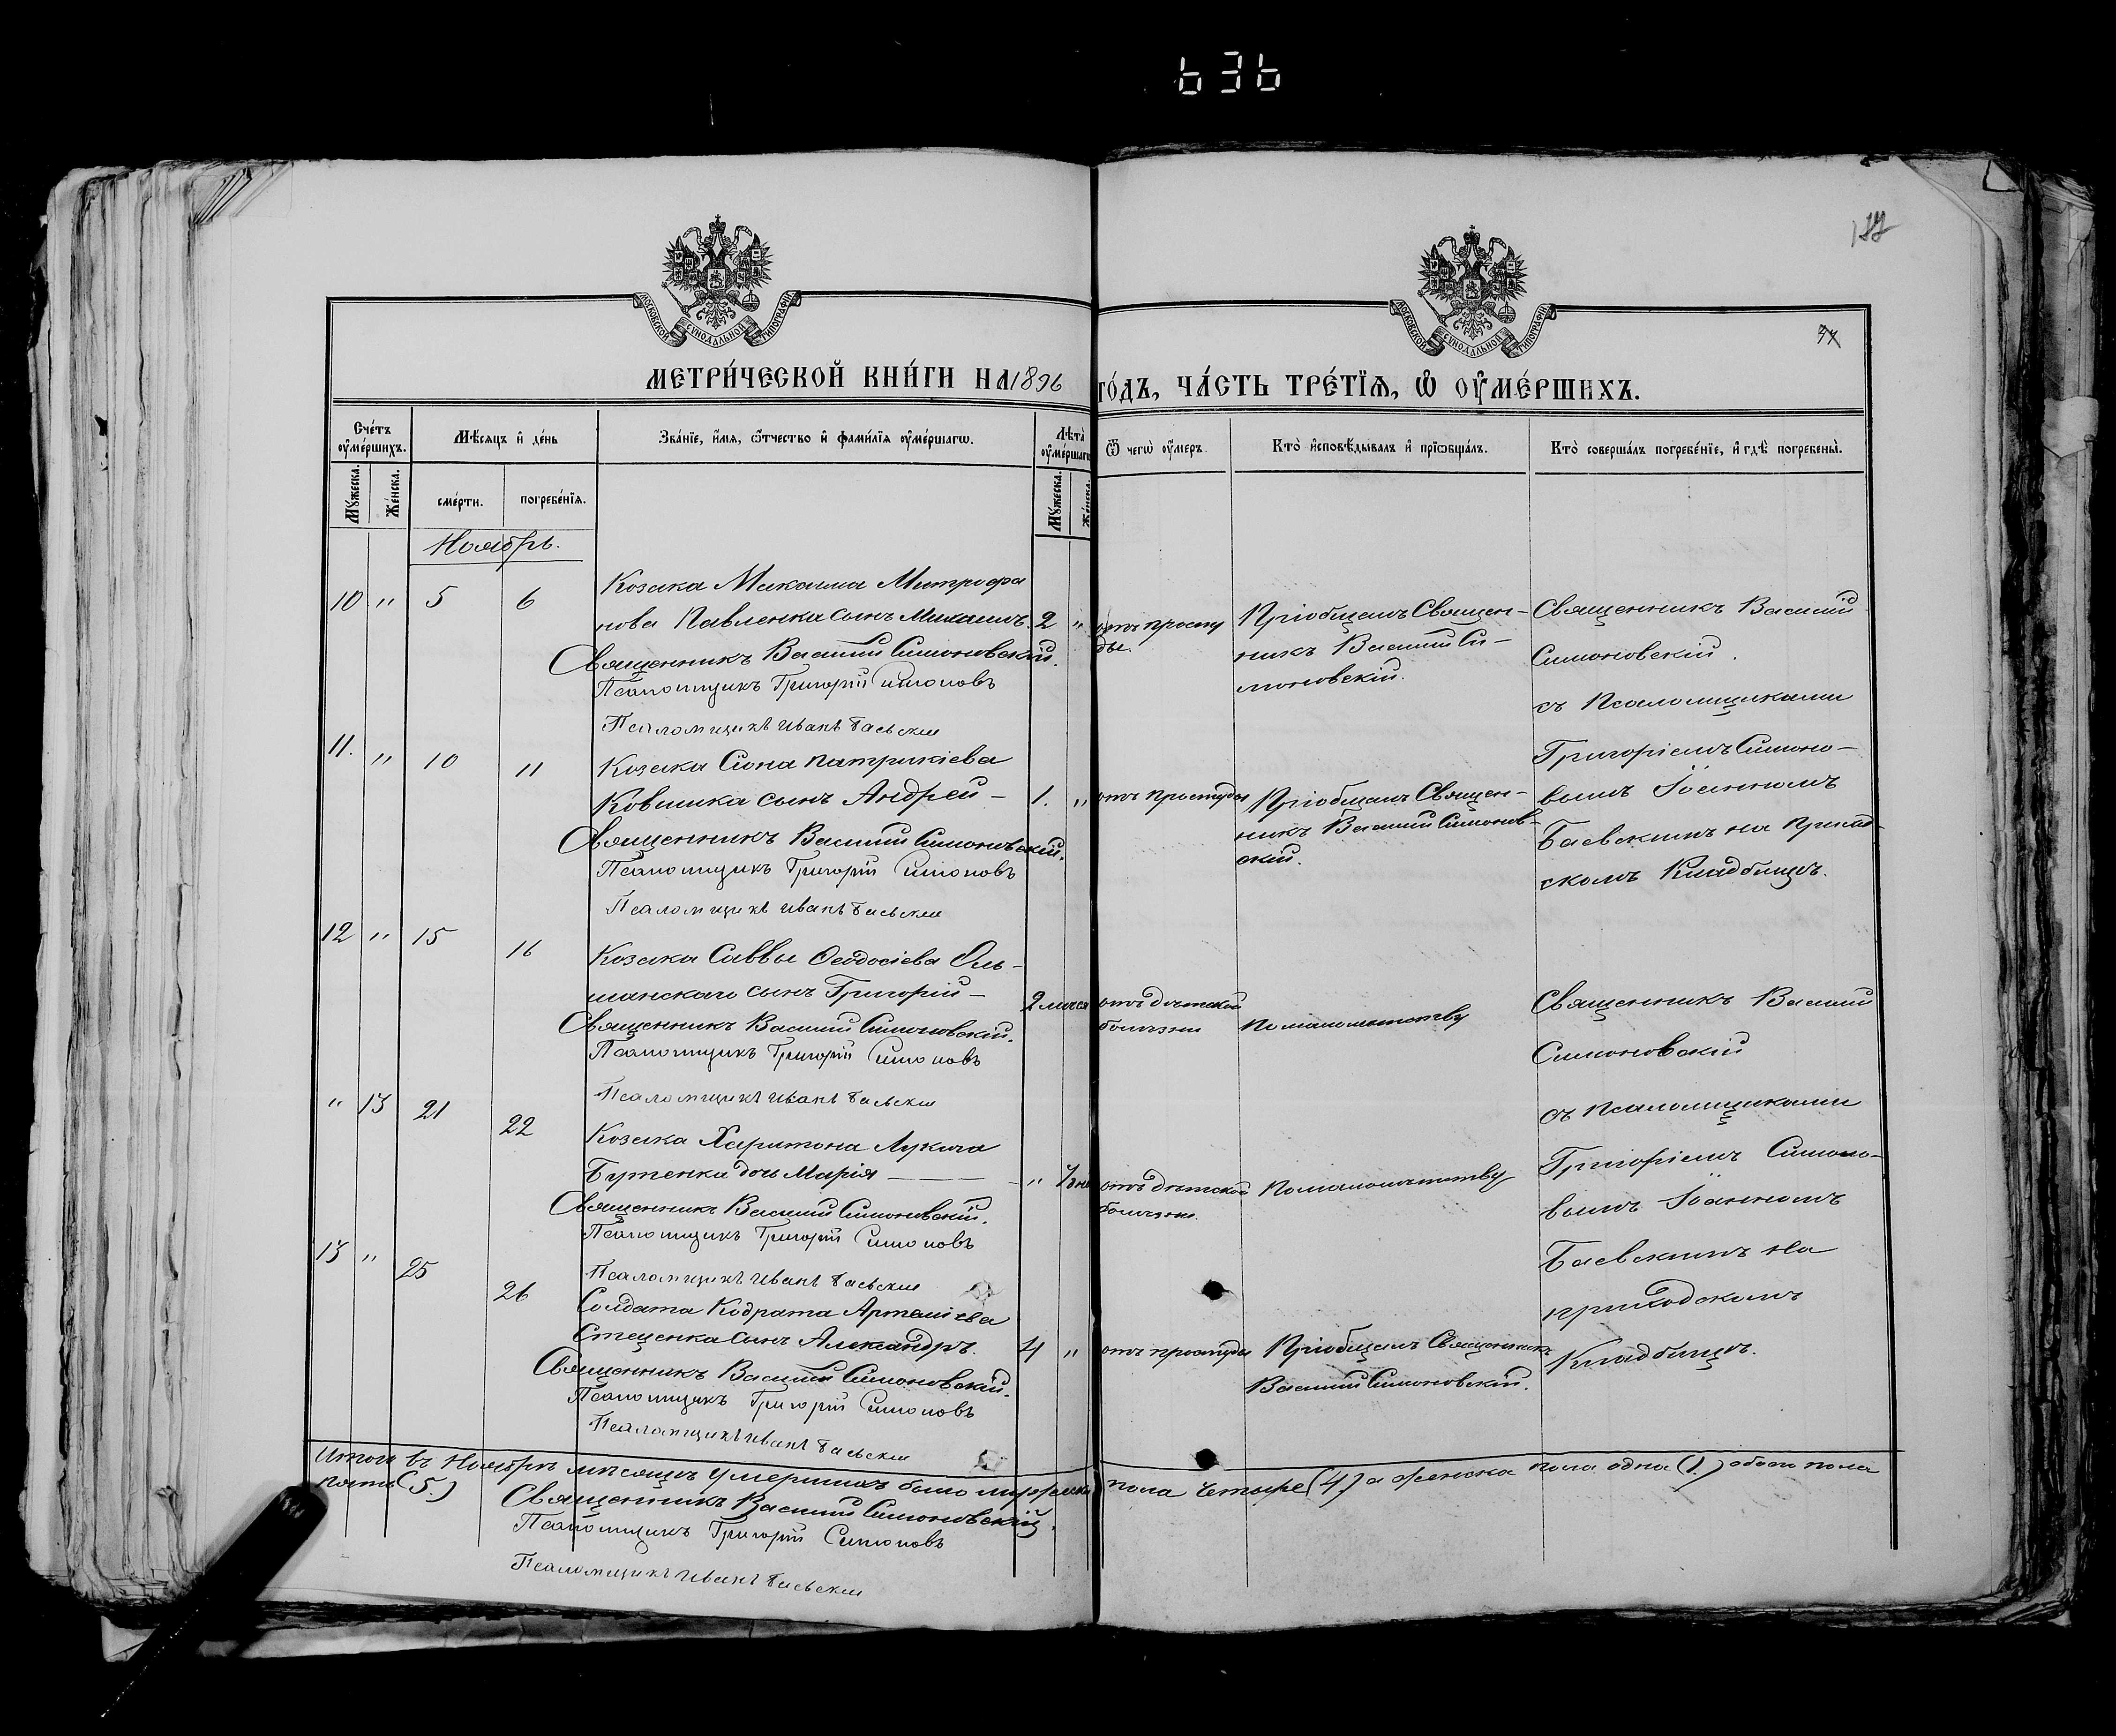 636
177
37
МОСКОВСКОЙ СѴНОДАЛЬНОЙ ТИПОГРАФІИ
МОСКОВСКОЙ СѴНОДАЛЬНОЙ ТИПОГРАФІИ
МЕТРИ́ЧЕСКОЙ КНИ́ГИ НА 1896 ГО́ДЪ, ЧА́СТЬ ТРЕ́ТІѦ, Ѡ҆ ОУ҆МЕ́РШИХЪ.
Сче́тъ оу҆ме́ршихъ.
Мѣ́сяцъ и҆ де́нь
Зва́нїе, и҆́мѧ, ѻ҆́тчество и҆ фами́лїѧ оу҆ме́ршагѡ.
Лѣ́та оу҆ме́ршагѡ
Ѿ чегѡ̀ оу҆́меръ.
Кто̀ и҆сповѣ́дывалъ и҆ прїѡбща́лъ.
Кто̀ соверша́лъ погребе́нїе, и҆ гдѣ̀ погребены̀.
Мꙋ́жеска.
Же́нска.
сме́рти.
погребе́нїѧ.
Мꙋ́жеска.
Же́нска.
Ноябрь.
10 " 5 6
Козака Михаила Митрофа
нова Павленка сынъ Михаилъ. 2 "
Священникъ Василій Симоновскій.
Псаломщикъ Григорій Симоновъ
Псаломщикъ Иванъ Баевскій
отъ просту
ды.
Пріобщалъ Священ-
никъ Василій Си-
моновскій.
Священникъ Василій
Симоновскій.
съ Псаломщиками
Григоріемъ Симоно-
вымъ Іоанномъ
Баевскимъ на приход-
скомъ Кладбищѣ.
11. " 10 11
Козака Сіона Патрикіева
Ковшика сынъ Андрей – 1. "
Священникъ Василій Симоновскій.
Псаломщикъ Григорій Симоновъ
Псаломщикъ Иванъ Баевскій
отъ простуды
Пріобщалъ Священ-
никъ Василій Симонов-
скій.
12 " 15 16
Козака Саввы Ѳеодосіева Оль-
шанскаго сынъ Григорій – 2 мѣся
Священникъ Василій Симоновскій.
Псаломщикъ Григорій Симоновъ
Псаломщикъ Иванъ Баевскій
отъ дѣтской
болѣзни
По малолѣтству
Священникъ Василій
Симоновскій
съ Псаломщиками
Григоріемъ Симоно-
вымъ Іоанномъ
Баевскимъ на
приходскомъ
Кладбищѣ.
" 13 21 22
Козака Харитона Лукича
Бутенка дочь Марія –
Священникъ Василій Симоновскій.
Псаломщикъ Григорій Симоновъ
Псаломщикъ Иванъ Баевскій
отъ дѣтской
болѣзни.
По малолѣтству
13 " 25 26
Солдата Кодрата Артеміева
Стеценка сынъ Александръ. 4 "
Священникъ Василій Симоновскій.
Псаломщикъ Григорій Симоновъ
Псаломщикъ Иванъ Баевскій
отъ простуды
Пріобщалъ Священникъ
Василій Симоновскій.
Итого въ Ноябрѣ мѣсяцѣ умершихъ было мужеска пола четыре (4) а женска пола одна (1.) обоего пола
пять (5.)
Священникъ Василій Симоновскій.
Псаломщикъ Григорій Симоновъ
Псаломщикъ Иванъ Баевскій